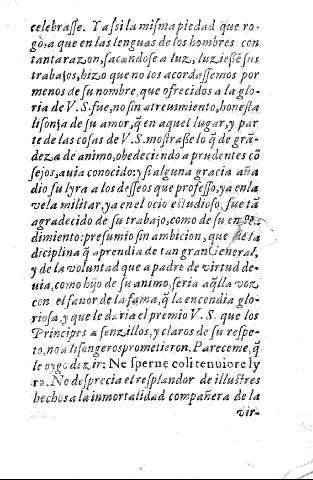 celebrasse. Y assi la misma piedad que ro-
gò, a que en las lenguas de los hombres con
tanta razon, sacandose a luz, luziessē sus
trabajos, hizo que no los acordassemos por
menos de su nombre, que ofrecidos a la glo-
ria de V. S. fue, no sin atreuimiento, honesta
lisonja de su amor, q̄ en aquel lugar, y par
te de las cosas de V. S. mostrasse lo q̄ de grā-
deza de animo, obedeciendo a prudentes cō
sejos, auia conocido: y si alguna gracia aña
dio su lyra a los desseos que professo, ya en la
vela militar, ya en el ocio estudioso, fue tā
agradecido de su trabajo, como de su en
dimiento: presumio sin ambicion, que de la
diciplina q̄ aprendia de tan gran General,
y de la voluntad que a padre de virtud de-
uia, como hijo de su animo, seria aq̄lla voz
con el fauor de la fama, q̄ la encendia glo-
riosa, y que le daria el premio V. S. que los
Principes a senzillos, y claros de su respe-
to, no a lisongeros prometieron. Pareceme, q̄
le oygo dezir: Ne sperne coli tenuiore ly
ra. No desprecia el resplandor de illustres
hechos a la inmortalidad compañera de la
vir-